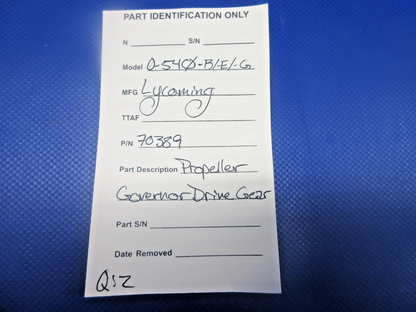 PART IDENTIFICATION ONLY
N S/N
Model O-540-B/-E/-G
MFG Lycoming
TTAF
P/N 70389
Part Description Propeller
Governor Drive Gear
Part S/N
Date Removed